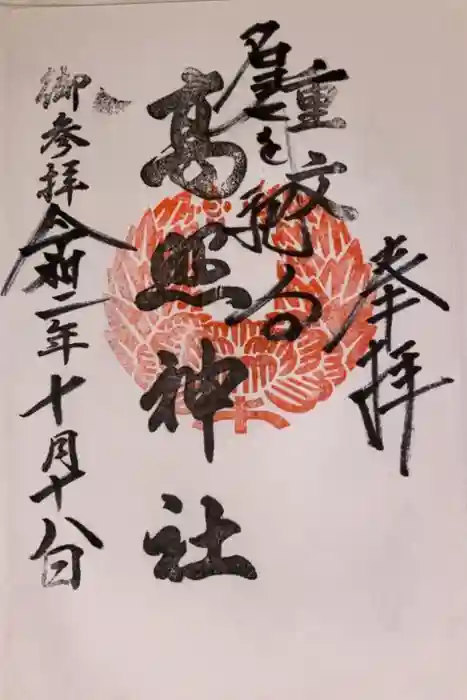 奉拝
重文
高照神社
御参拝
令和二年十月十八日